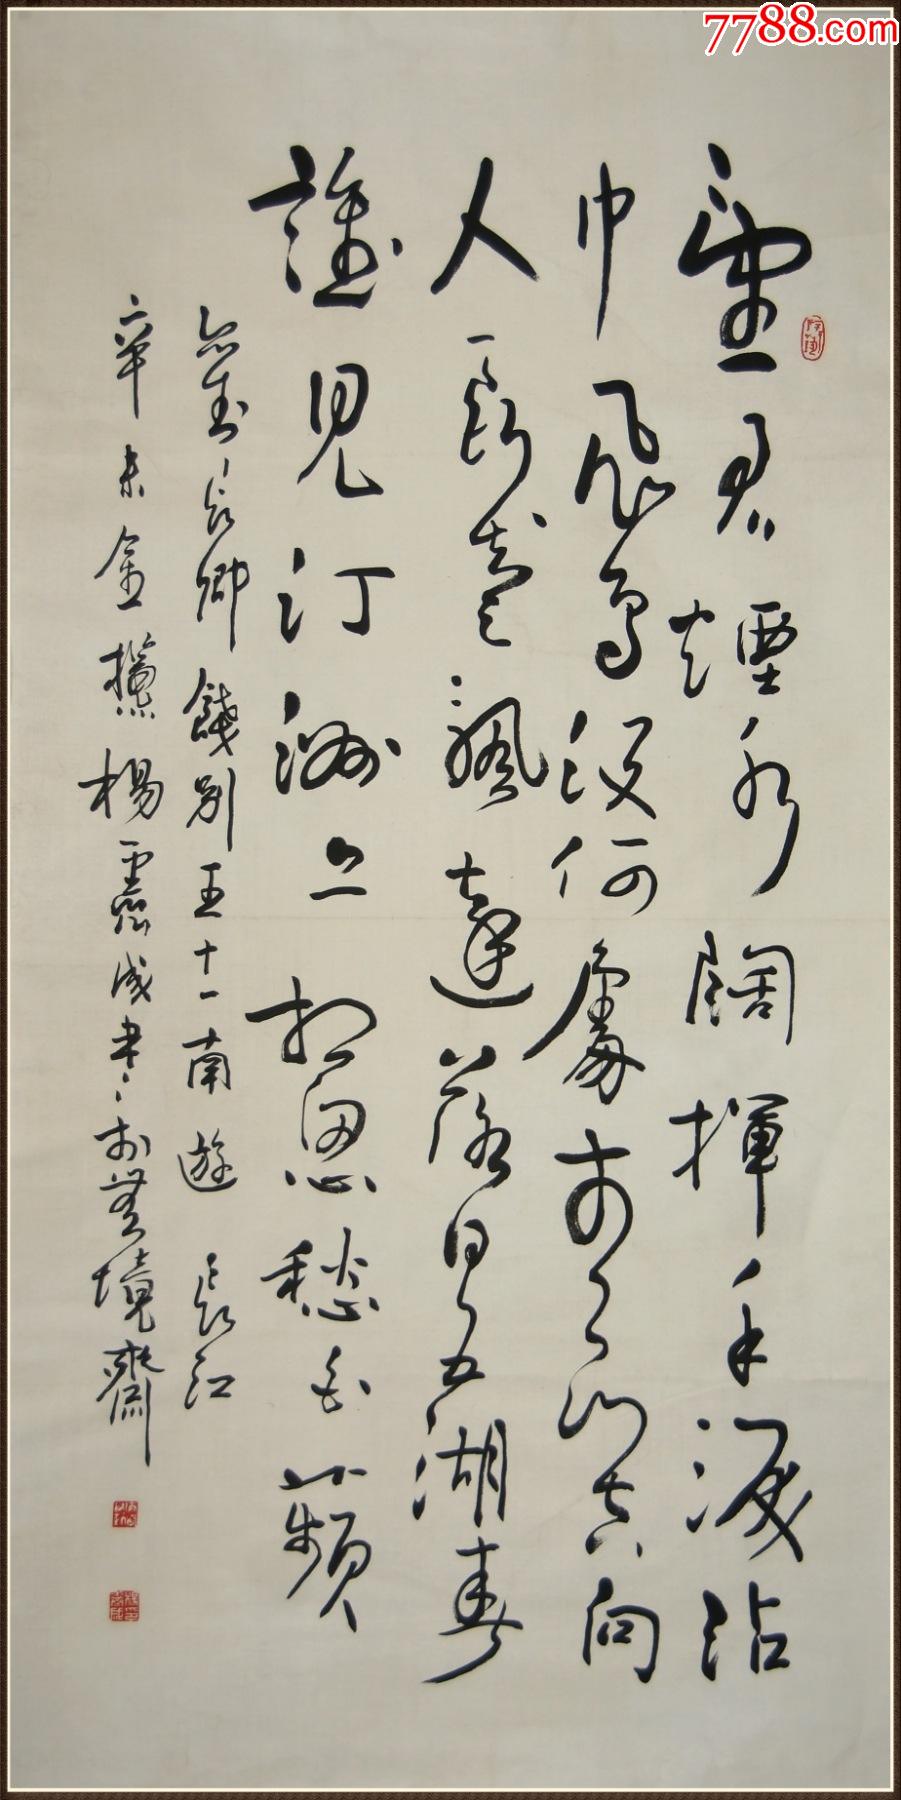 7788.com
望君煙水闊揮手淚沾
巾飛鳥没何處青山空向
人颿遠落日五湖春
誰見汀洲上相思愁白蘋
劉長卿餞別王十一南遊 長江
辛未金楊成書於境齋